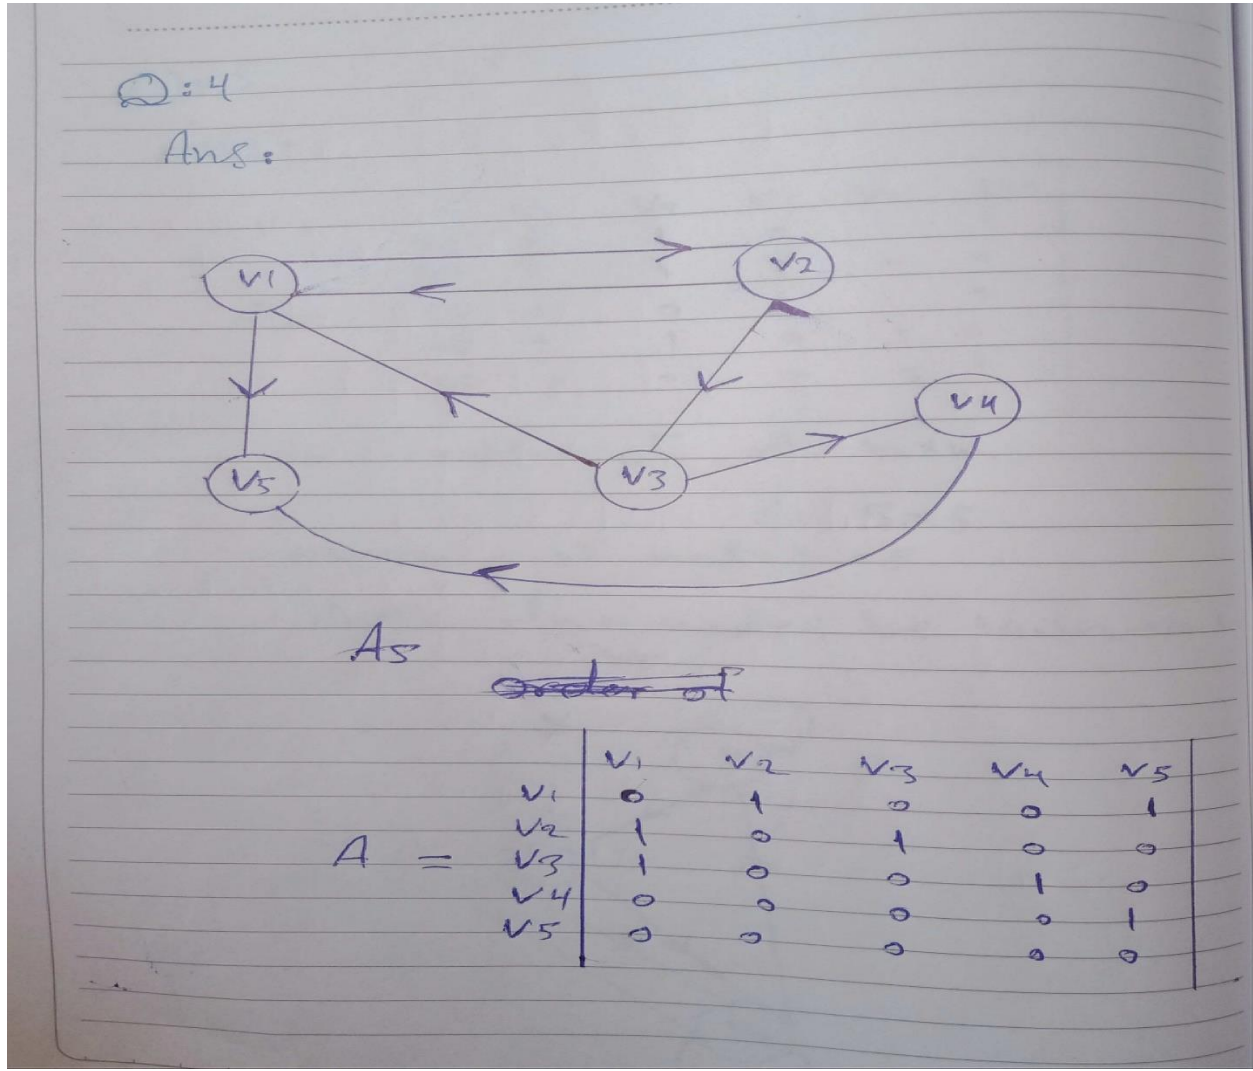 Q: 4
Ans:
V1
V2
V4
V5
V3
As
order of
V1 V2 V3 V4 V5
V1 0 1 0 0 1
V2 1 0 1 0 0
A = V3 1 0 0 1 0
V4 0 0 0 0 1
V5 0 0 0 0 0